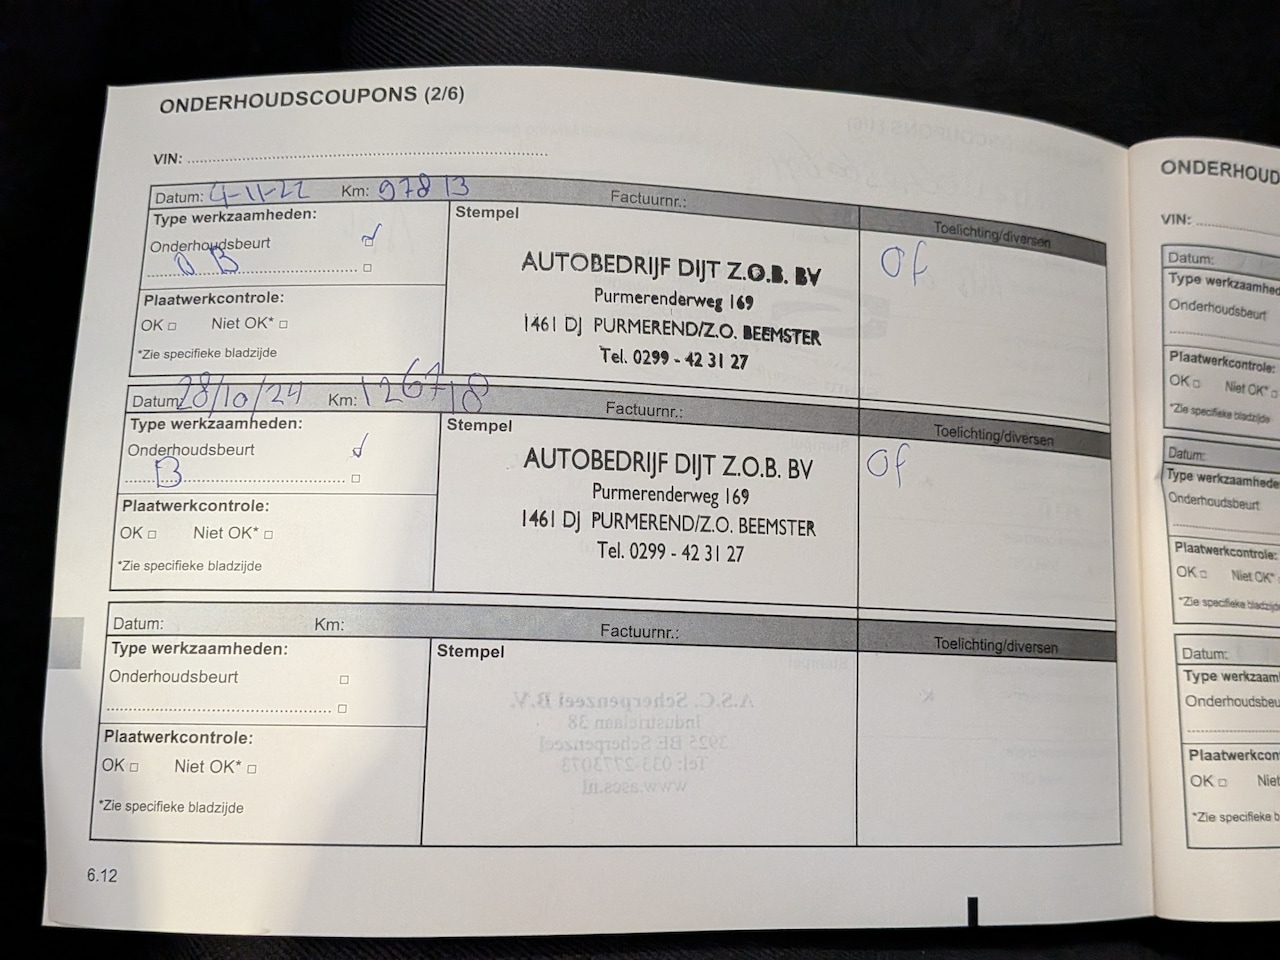 ONDERHOUDSCOUPONS (2/6)
VIN:
Datum: 4-11-22 Km: 97813 Factuurnr.:
Type werkzaamheden:
Stempel
Toelichting/diversen
Onderhoudsbeurt
B
Plaatwerkcontrole:
OK Niet OK*
*Zie specifieke bladzijde
AUTOBEDRIJF DIJT Z.O.B. BV
Purmerenderweg 169
1461 DJ PURMEREND/Z.O. BEEMSTER
Tel. 0299 - 42 31 27
Of
Datum: 28/10/24 Km: 126718 Factuurnr.:
Type werkzaamheden:
Stempel
Toelichting/diversen
Onderhoudsbeurt
B
Plaatwerkcontrole:
OK Niet OK*
*Zie specifieke bladzijde
AUTOBEDRIJF DIJT Z.O.B. BV
Purmerenderweg 169
1461 DJ PURMEREND/Z.O. BEEMSTER
Tel. 0299 - 42 31 27
Of
Datum: Km: Factuurnr.:
Type werkzaamheden:
Stempel
Toelichting/diversen
Onderhoudsbeurt
Plaatwerkcontrole:
OK Niet OK*
*Zie specifieke bladzijde
A.S.C. Scherpenzeel B.V.
Industrielaan 38
3925 BE Scherpenzeel
Tel: 033-2773073
www.ascs.nl
6.12
ONDERHOUD
VIN:
Datum:
Type werkzaamhed
Onderhoudsbeurt
Plaatwerkcontrole:
OK Niet OK*
*Zie specifieke bladzijde
Datum:
Type werkzaamhede
Onderhoudsbeurt
Plaatwerkcontrole:
OK Niet OK*
*Zie specifieke bladzijd
Datum:
Type werkzaam
Onderhoudsbeu
Plaatwerkcon
OK Niet
*Zie specifieke b